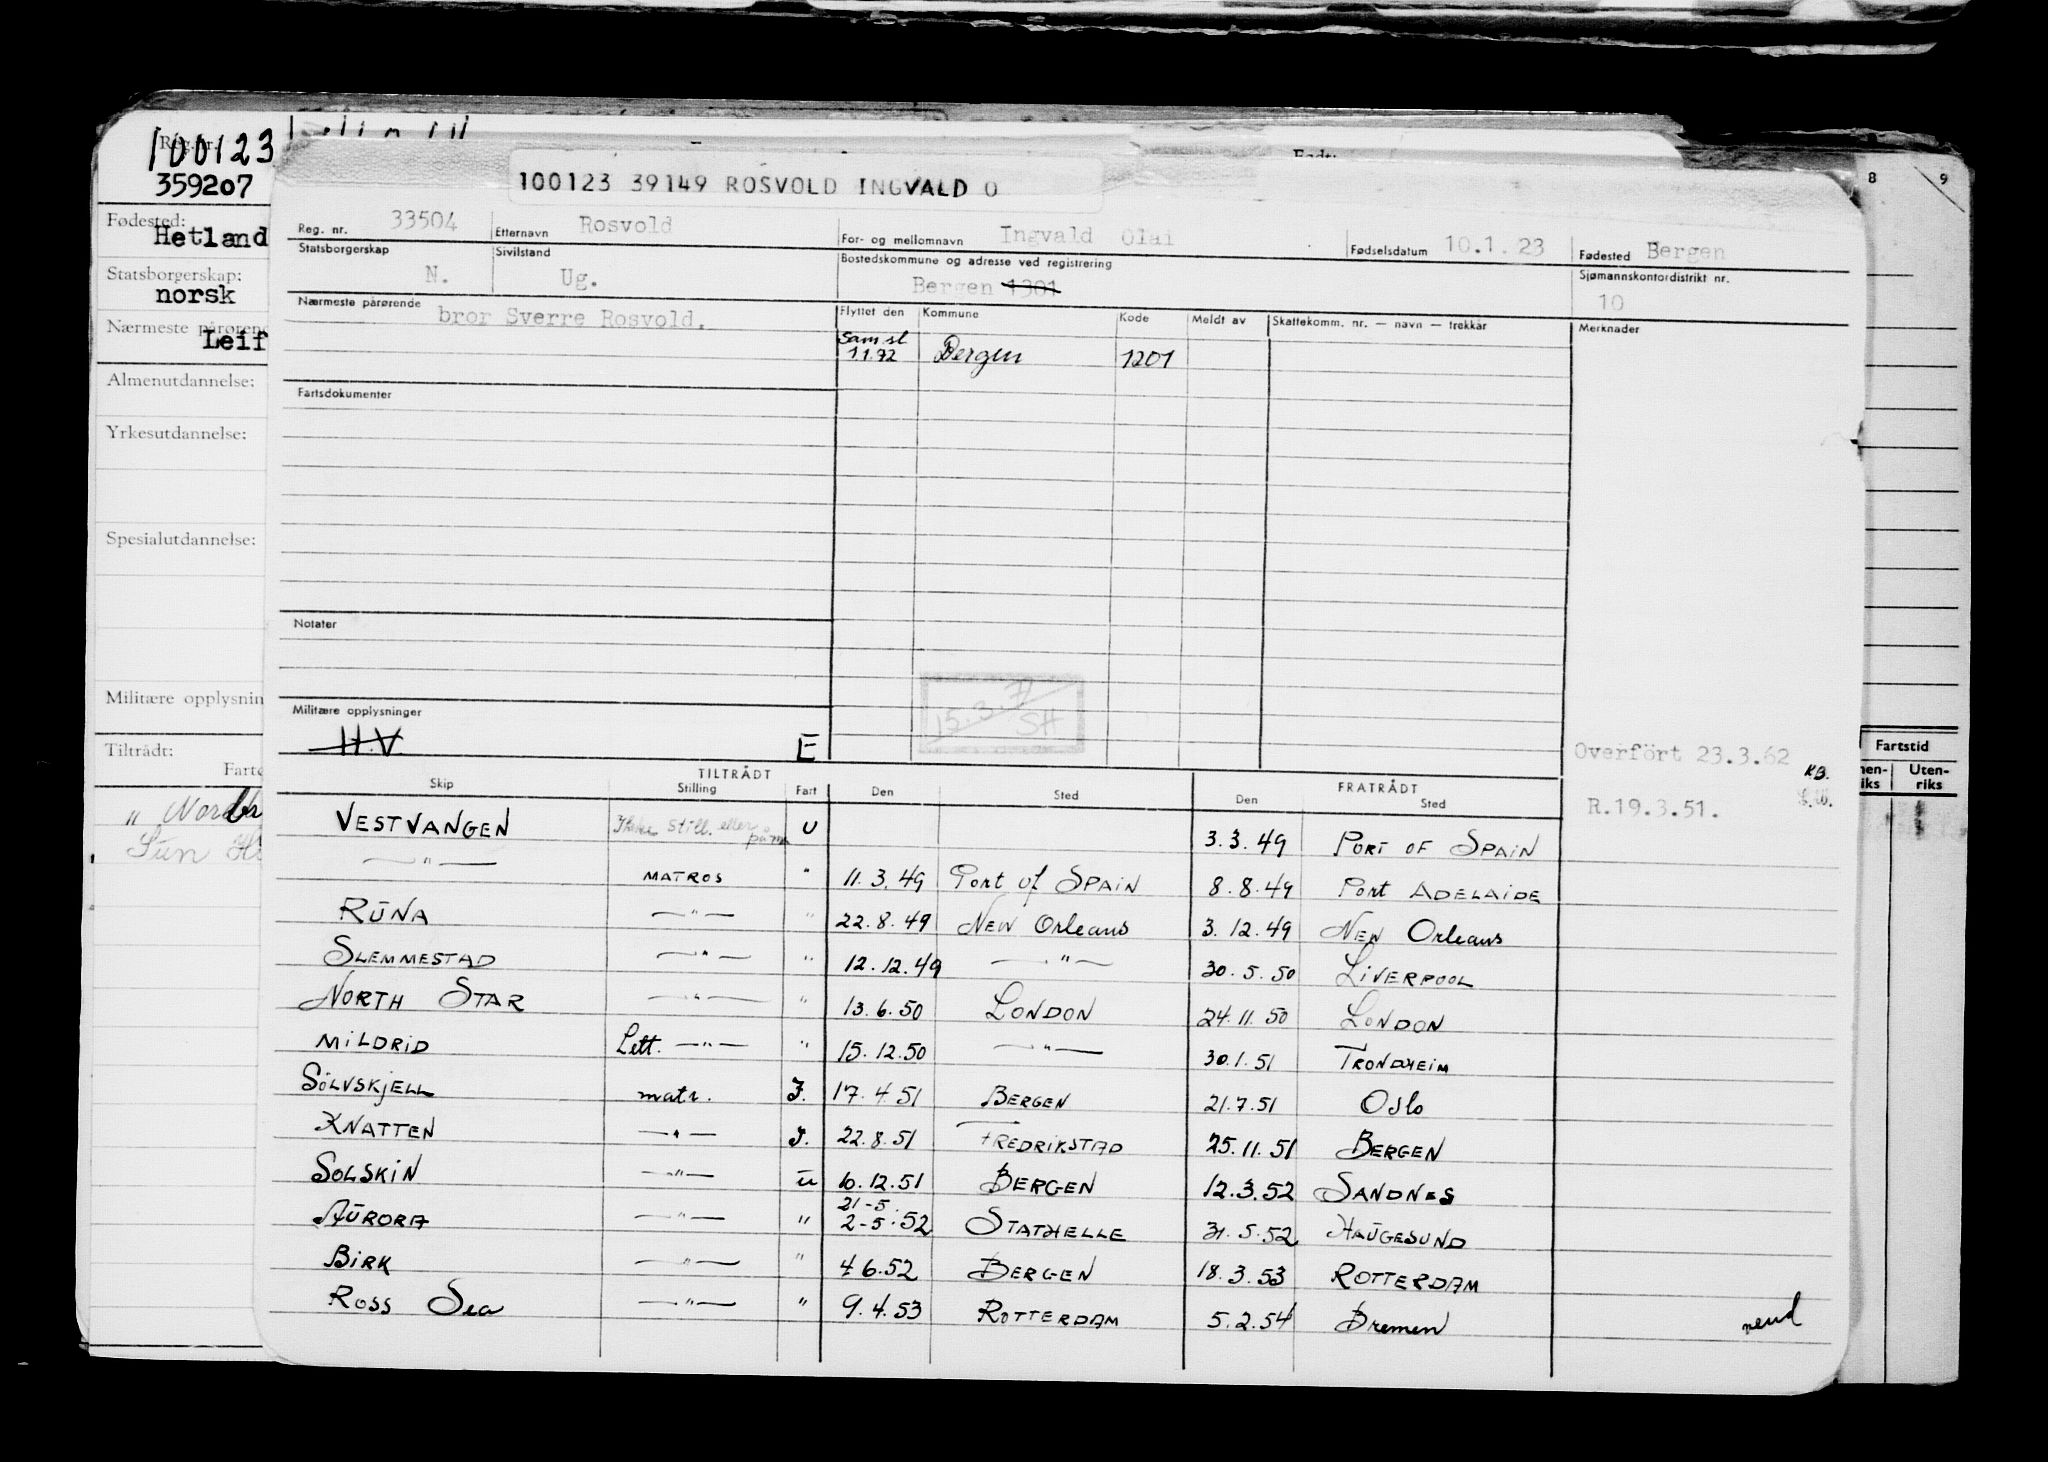 Reg. nr.
100123
359207
Fødested:
Hetland
Statsborgerskap:
norsk
Nærmeste pårørend
Leif
Almenutdannelse:
Yrkesutdannelse:
Spesialutdannelse:
Militære opplysnin
Tiltrådt:
Farts
Født:
8 9
Fartstid
Uten-
riks
100123 39149 ROSVOLD INGVALD O
Reg. nr. 33504 Etternavn Rosvold For- og mellomnavn Ingvald Olai Fødselsdatum 10.1.23 Fødested Bergen
Statsborgerskap N. Sivilstand Ug. Bostedskommune og adresse ved registrering Bergen 1301 Sjømannskontordistrikt nr. 10
Nærmeste pårørende bror Sverre Rosvold.
Flyttet den Kommune Kode Meldt av Skattekomm. nr. — navn — trekkår Merknader
Sam.sl
1.1.72 Bergen 1201
Fartsdokumenter
Notater
Militære opplysninger
H.V. E
15.3.7 SH
Overfört 23.3.62 KB.
R.19.3.51.
TILTRÅDT FRATRÅDT
Skip Stilling Fart Den Sted Den Sted
VESTVANGEN Ikke still. eller U 3.3.49 PORT OF SPAIN
—"— MATROS " 11.3.49 Port of SPAIN 8.8.49 Port ADELAIDE
RUNA —"— " 22.8.49 NEW Orleans 3.12.49 NEW Orleans
SLEMMESTAD —"— " 12.12.49 —"— 30.5.50 LIVERPOOL
NORTH STAR —"— " 13.6.50 LONDON 24.11.50 LONDON
MILDRID Lett. —"— " 15.12.50 —"— 30.1.51 TRONDHEIM
SÖLVSKJELL matr. I. 17.4.51 BERGEN 21.7.51 OSlo
KNATTEN —"— I. 22.8.51 FREDRIKSTAD 25.11.51 BERGEN
SOLSKIN —"— U 6.12.51 BERGEN 12.3.52 SANDNES
21-5.
AURORA —"— " 2-5.52 STATHELLE 31.5.52 HAUGESUND
BIRK —"— " 4.6.52 BERGEN 18.3.53 ROTTERDAM
ROSS Sea —"— " 9.4.53 ROTTERDAM 5.2.54 Bremen